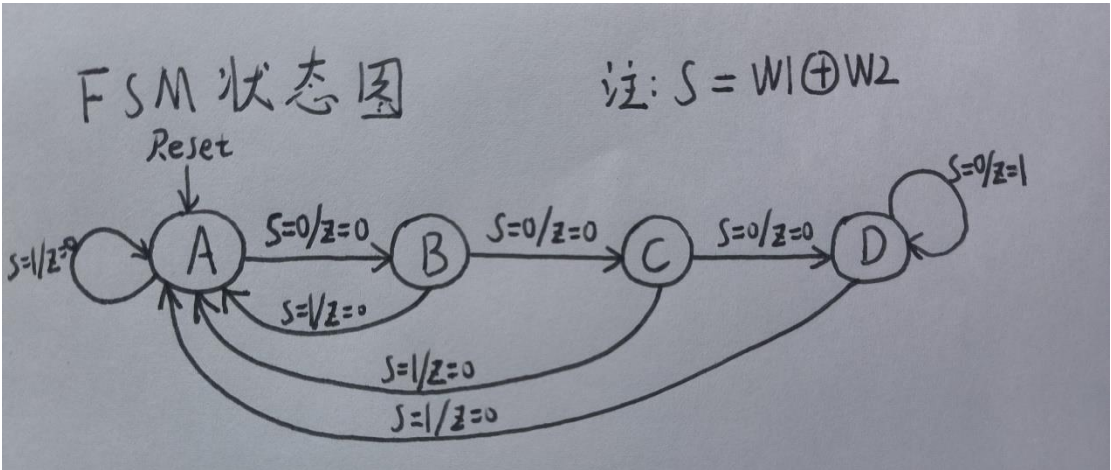 FSM状态图
注: S = W1⊕W2
Reset
S=1/Z=0
A
S=0/Z=0
B
S=0/Z=0
C
S=0/Z=0
D
S=0/Z=1
S=1/Z=0
S=1/Z=0
S=1/Z=0